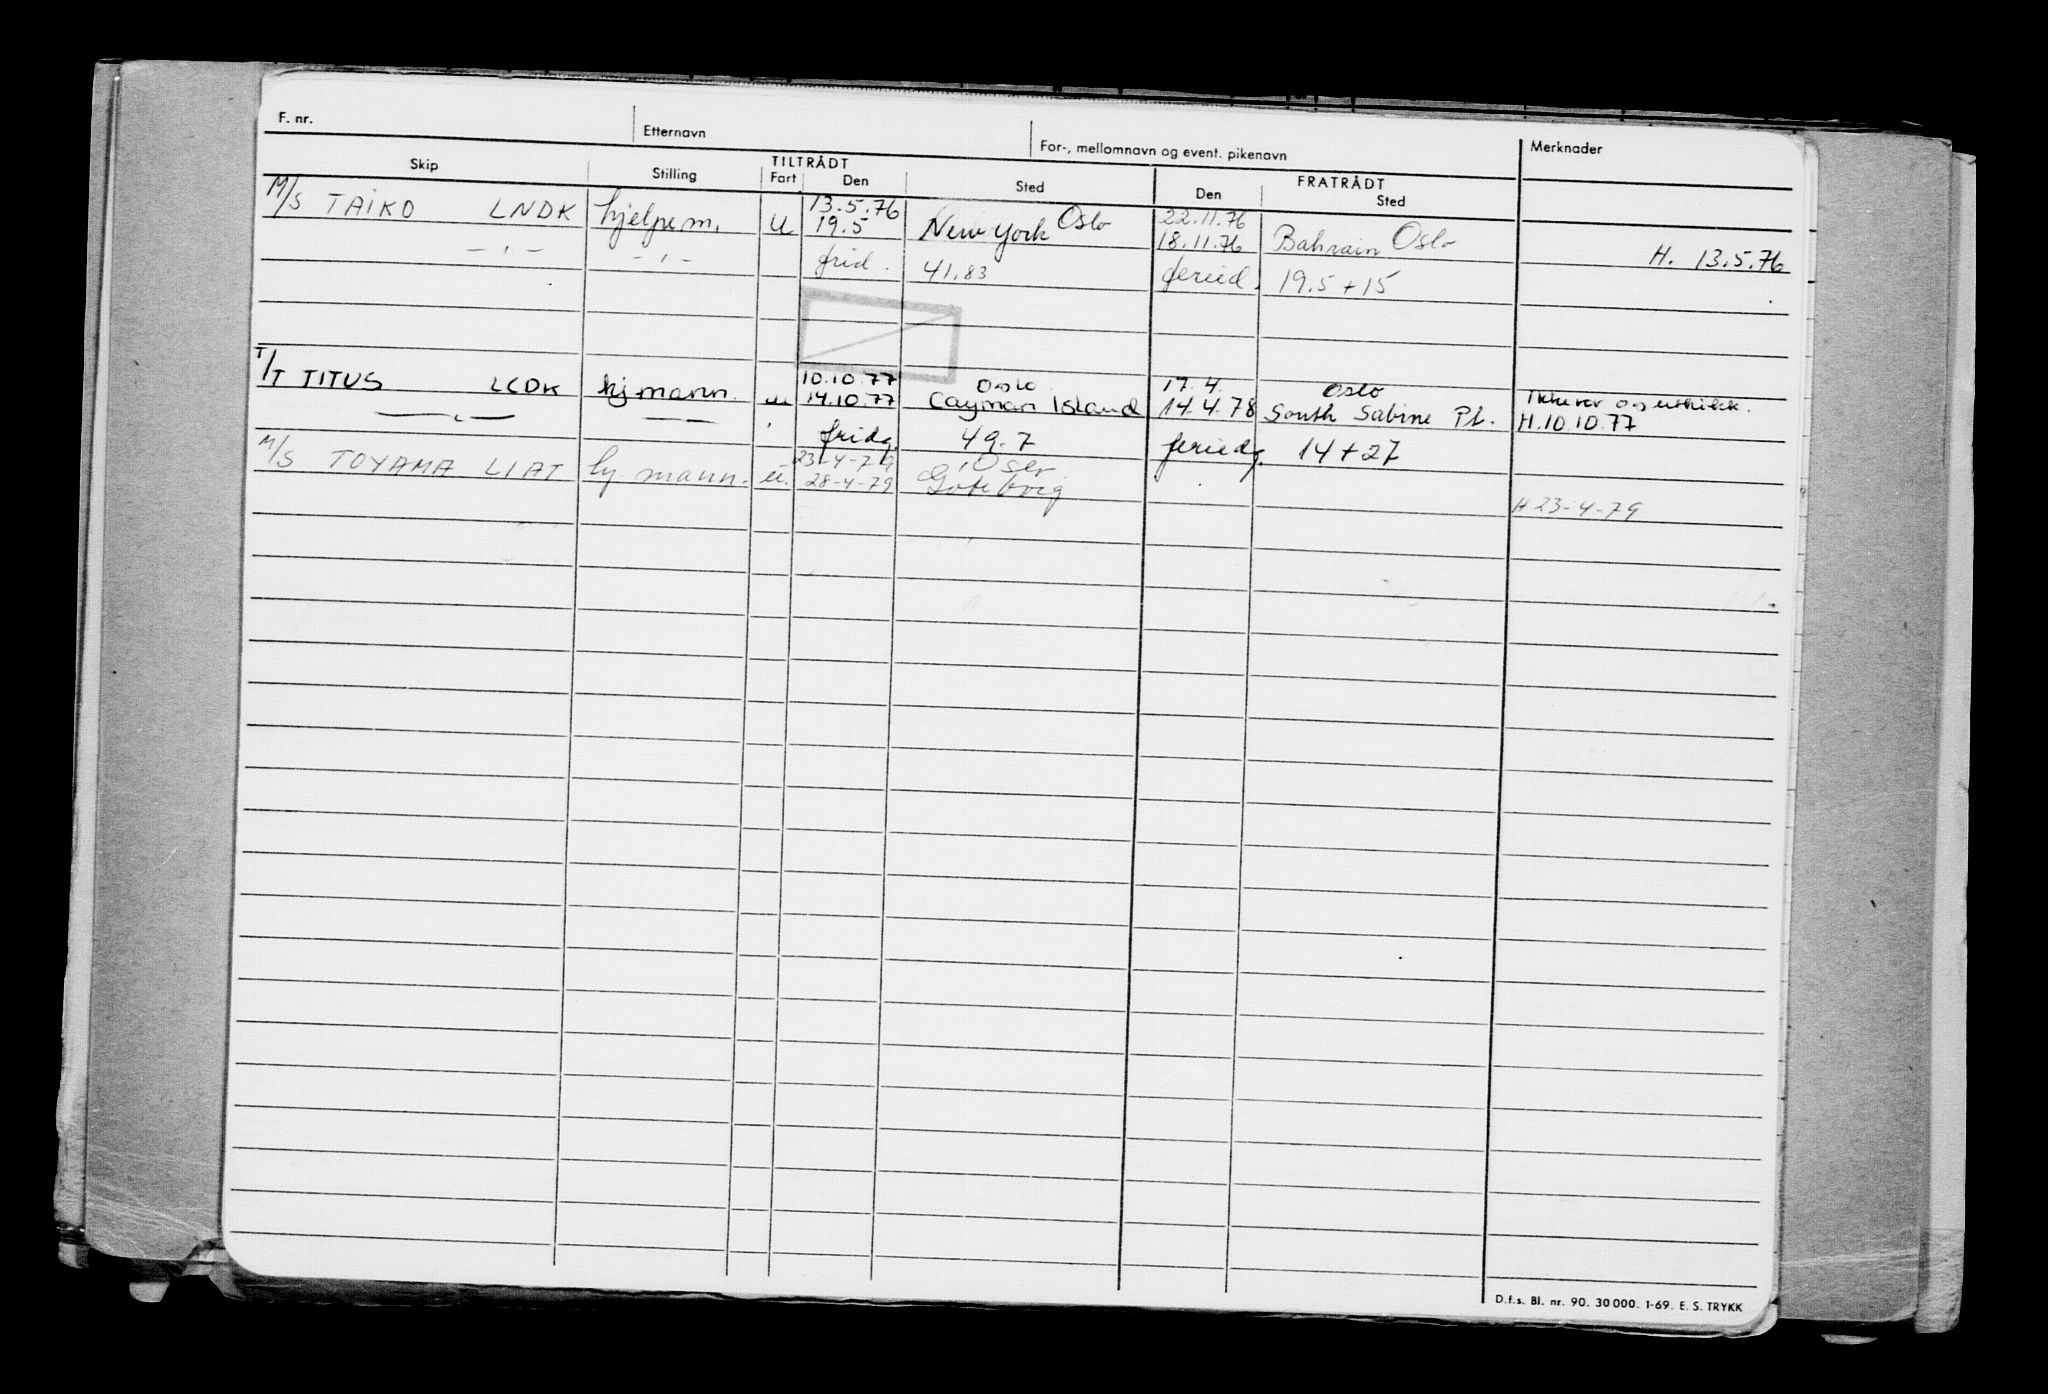 F. nr. Etternavn For-, mellomnavn og event. pikenavn Merknader
TILTRÅDT FRATRÅDT
Skip Stilling Fart Den Sted Den Sted
13.5.76 Oslo 22.11.76 Oslo
M/S TAIKO LNDK hjelpem. u 19.5 New York 18.11.76 Bahrain H. 13.5.76
— " — — " — frid. 41.83 feried. 19.5 + 15
10.10.77 Oslo 17.4. Oslo
T/T TITUS LCDK hj mann. u 14.10.77 Cayman Island 14.4.78 South Sabine Pt. H.10.10.77
fridg. 49.7 feriedg. 14 + 27
23-4-79
M/S TOYAMA LIAT hj. mann. u. 28-4-79 Gøteborg H 23-4-79
D.f.s. Bl. nr. 90. 30 000. 1-69. E. S. TRYKK